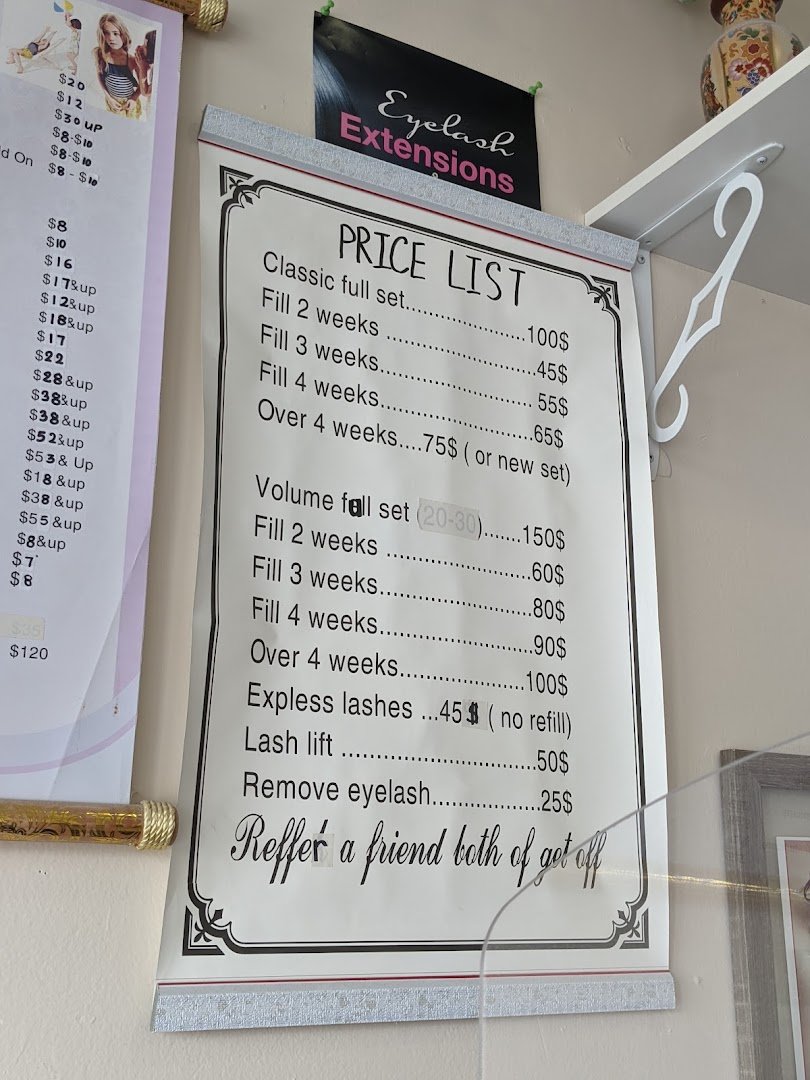 $20
$12
$30 UP
$8-$10
d On $8-$10
$8-$10
$8
$10
$16
$17&up
$12&up
$18&up
$17
$22
$28&up
$38&up
$38&up
$52&up
$53& Up
$18&up
$38&up
$55&up
$8&up
$7
$8
$35
$120
Eyelash
Extensions
PRICE LIST
Classic full set......................100$
Fill 2 weeks ...........................45$
Fill 3 weeks............................ 55$
Fill 4 weeks............................65$
Over 4 weeks....75$ ( or new set)
Volume full set (20-30).......150$
Fill 2 weeks ..........................60$
Fill 3 weeks............................80$
Fill 4 weeks............................90$
Over 4 weeks.......................100$
Expless lashes ...45$ ( no refill)
Lash lift ...................................50$
Remove eyelash....................25$
Reffer a friend both of get off